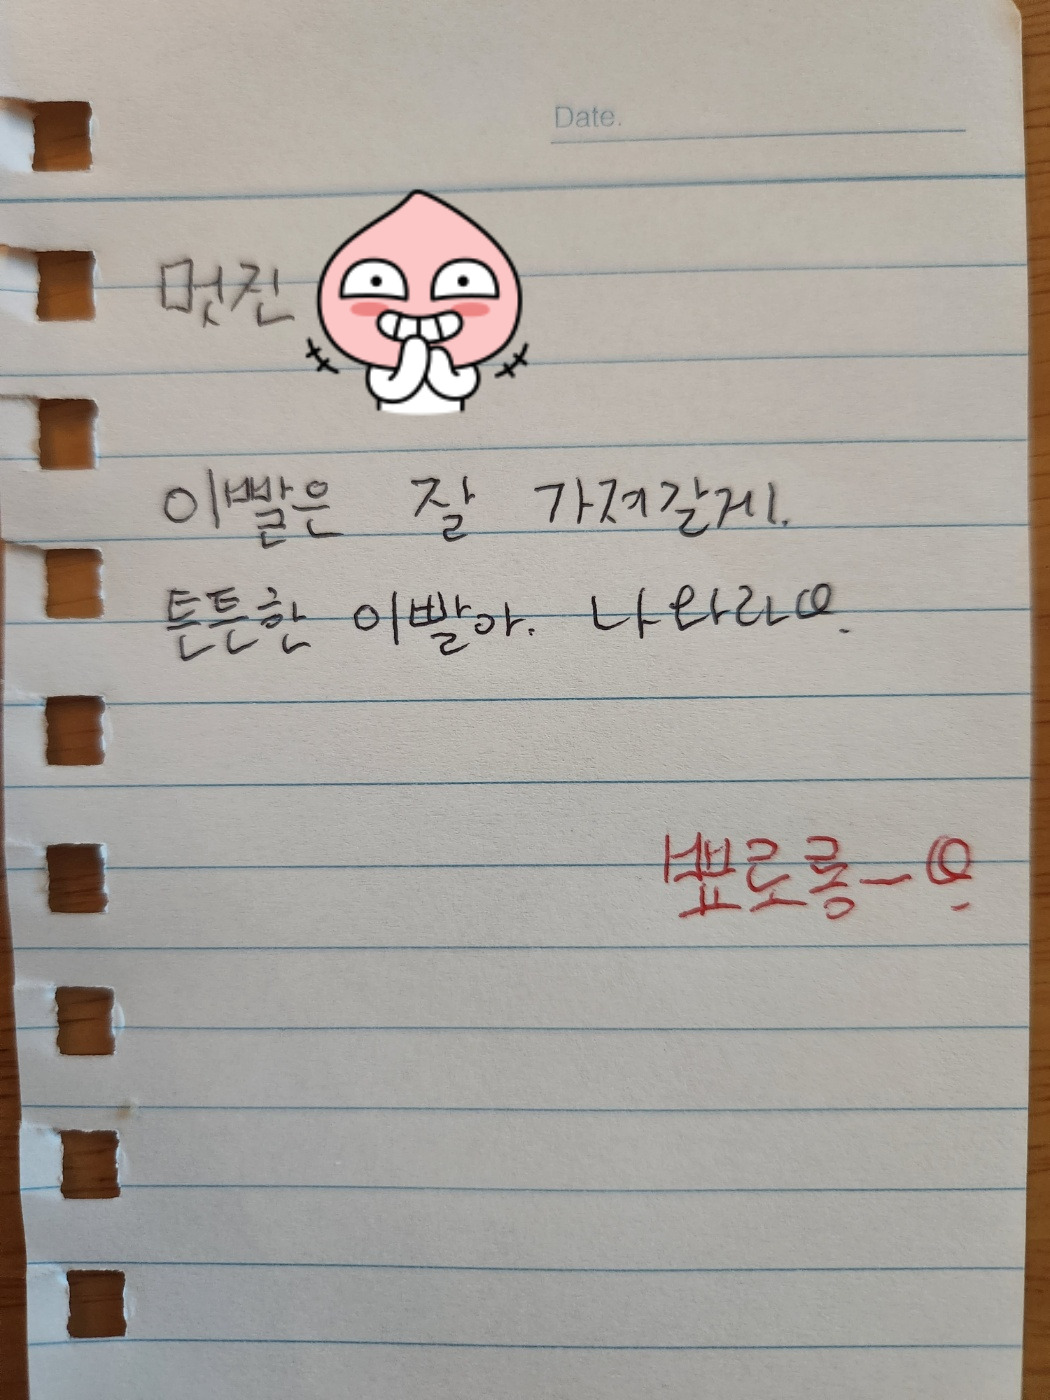 Date.
멋진
이빨은 잘 가져갈게.
튼튼한 이빨아. 나와라요.
뾰로롱~요